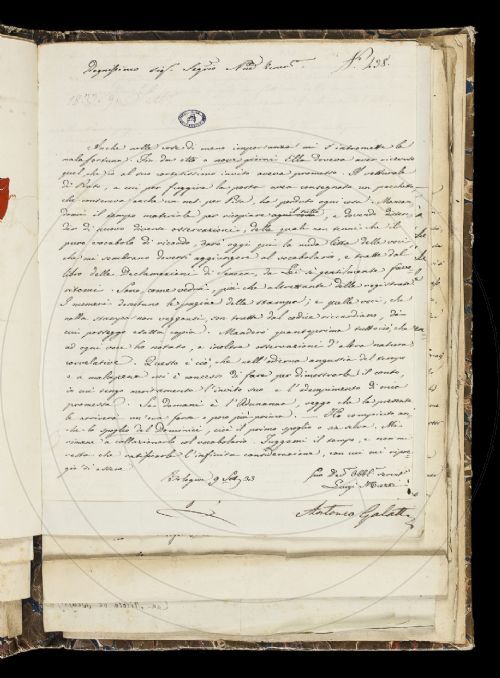 N.º 438.
Anche nelle cose di meno importanza mi s'intromette la
mala fortuna. Fin da otto o nove giorni Ella doveva aver ricevuto
quel che già al suo cortesissimo invito aveva promesso. Il vetturale
di Prato, a cui per sfuggire la posta avea consegnato un pacchetto
che conteneva anche un per Lei, ha perduto ogni cosa. Mancan-
domi il tempo materiale per ripigliare tutto, e dovendo disten-
der di nuovo diverse osservazioni, delle quali non tenni che il
puro vocabolo di ricordo, darò oggi qui la nuda lista delle voci
che mi sembrano doversi aggiungere al vocabolario, e tratte dal
libro delle Declamazioni di Seneca, da Lei sì gentilmente favo-
ritomi. Sono, come vedrà, più che altrettante delle registrate.
I numeri denotano le pagine della stampa; e quelle voci, che
nella stampa non veggonsi, son tratte dal codice riccardiano, di
cui posseggo esatta copia. Manderò quantoprima tuttociò, che
ad ogni voce ho notato, e inoltre osservazioni d'altra natura
correlative. Questo è ciò che nell'odierna angustia del tempo
e a malapena mi è concesso di fare per dimostrarle il conto,
in cui tengo meritamente l'invito suo e l'adempimento di mia
promessa. Se domani è l'Adunanza, veggo che la presente
le arriverà un'ora forse o poco più prima. — Ho compiuto an-
che lo spoglio del Domenici, cioè il primo spoglio
a collazionarlo col vocabolario. Fuggemi il tempo, e non mi
resta che ratificarle l'infinita considerazione, con cui mi ripro-
9 33
Luigi
Antonio